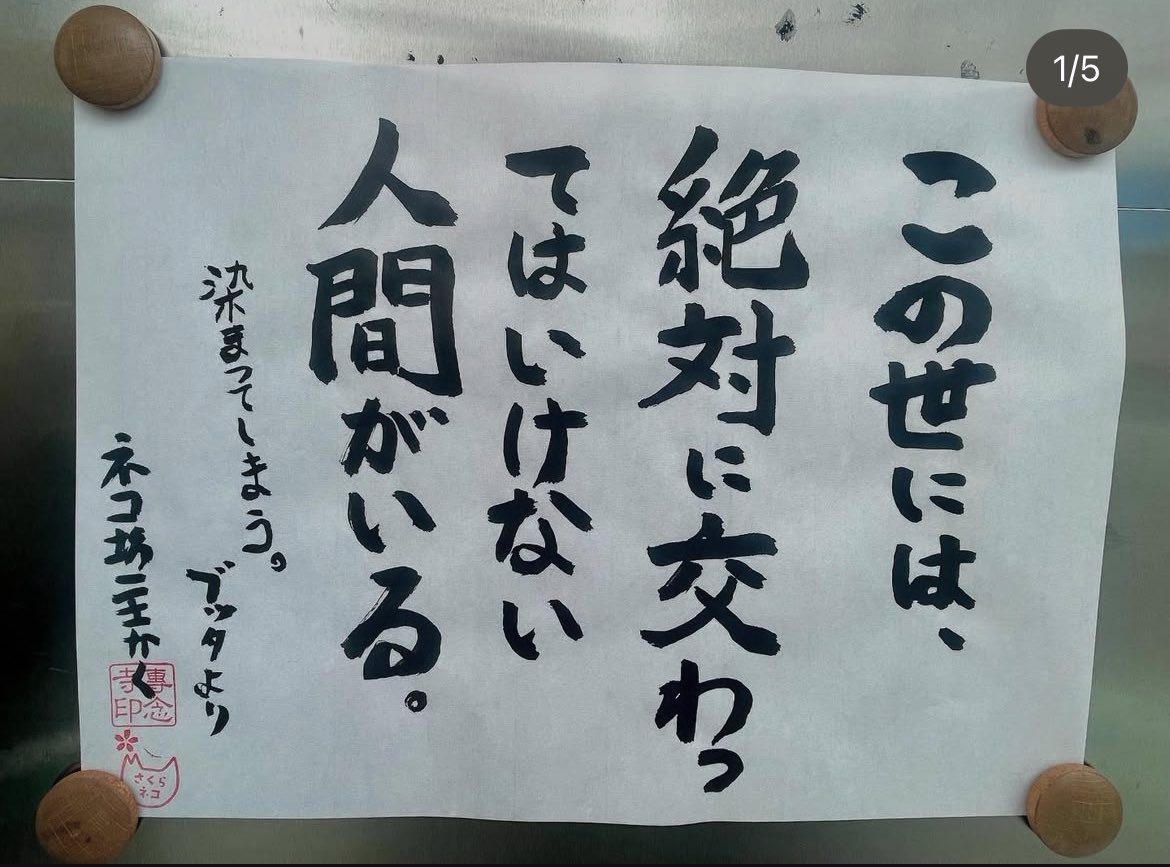 この世には、
絶対に交わっ
てはいけない
人間がいる。
染まってしまう。
ブッタより
ネコ坊主かく
專念
寺印
さくら
ネコ
1/5